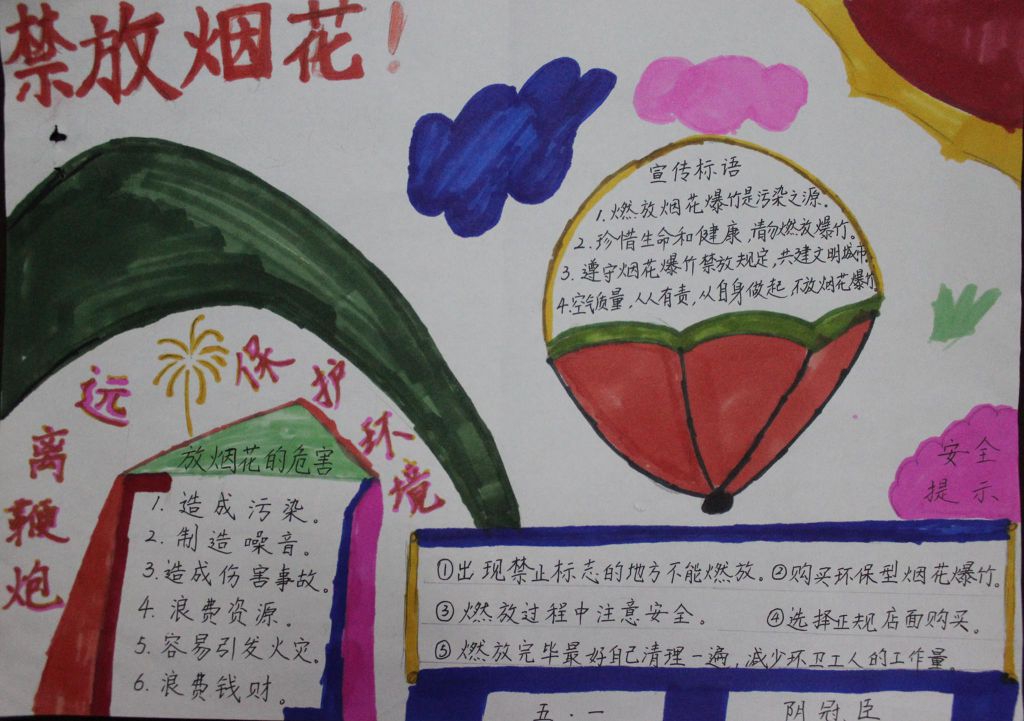 禁放烟花！
宣传标语
1.燃放烟花爆竹是污染之源。
2.珍惜生命和健康,请勿燃放爆竹。
3.遵守烟花爆竹禁放规定,共建文明城市
4.空气质量,人人有责,从自身做起 不放烟花爆竹
远离鞭炮
保护环境
放烟花的危害
1.造成污染。
2.制造噪音。
3.造成伤害事故。
4.浪费资源。
5.容易引发火灾。
6.浪费钱财。
安全
提示
①出现禁止标志的地方不能燃放。②购买环保型烟花爆竹。
③燃放过程中注意安全。 ④选择正规店面购买。
⑤燃放完毕最好自己清理一遍,减少环卫工人的工作量。
五.一 阴冠臣